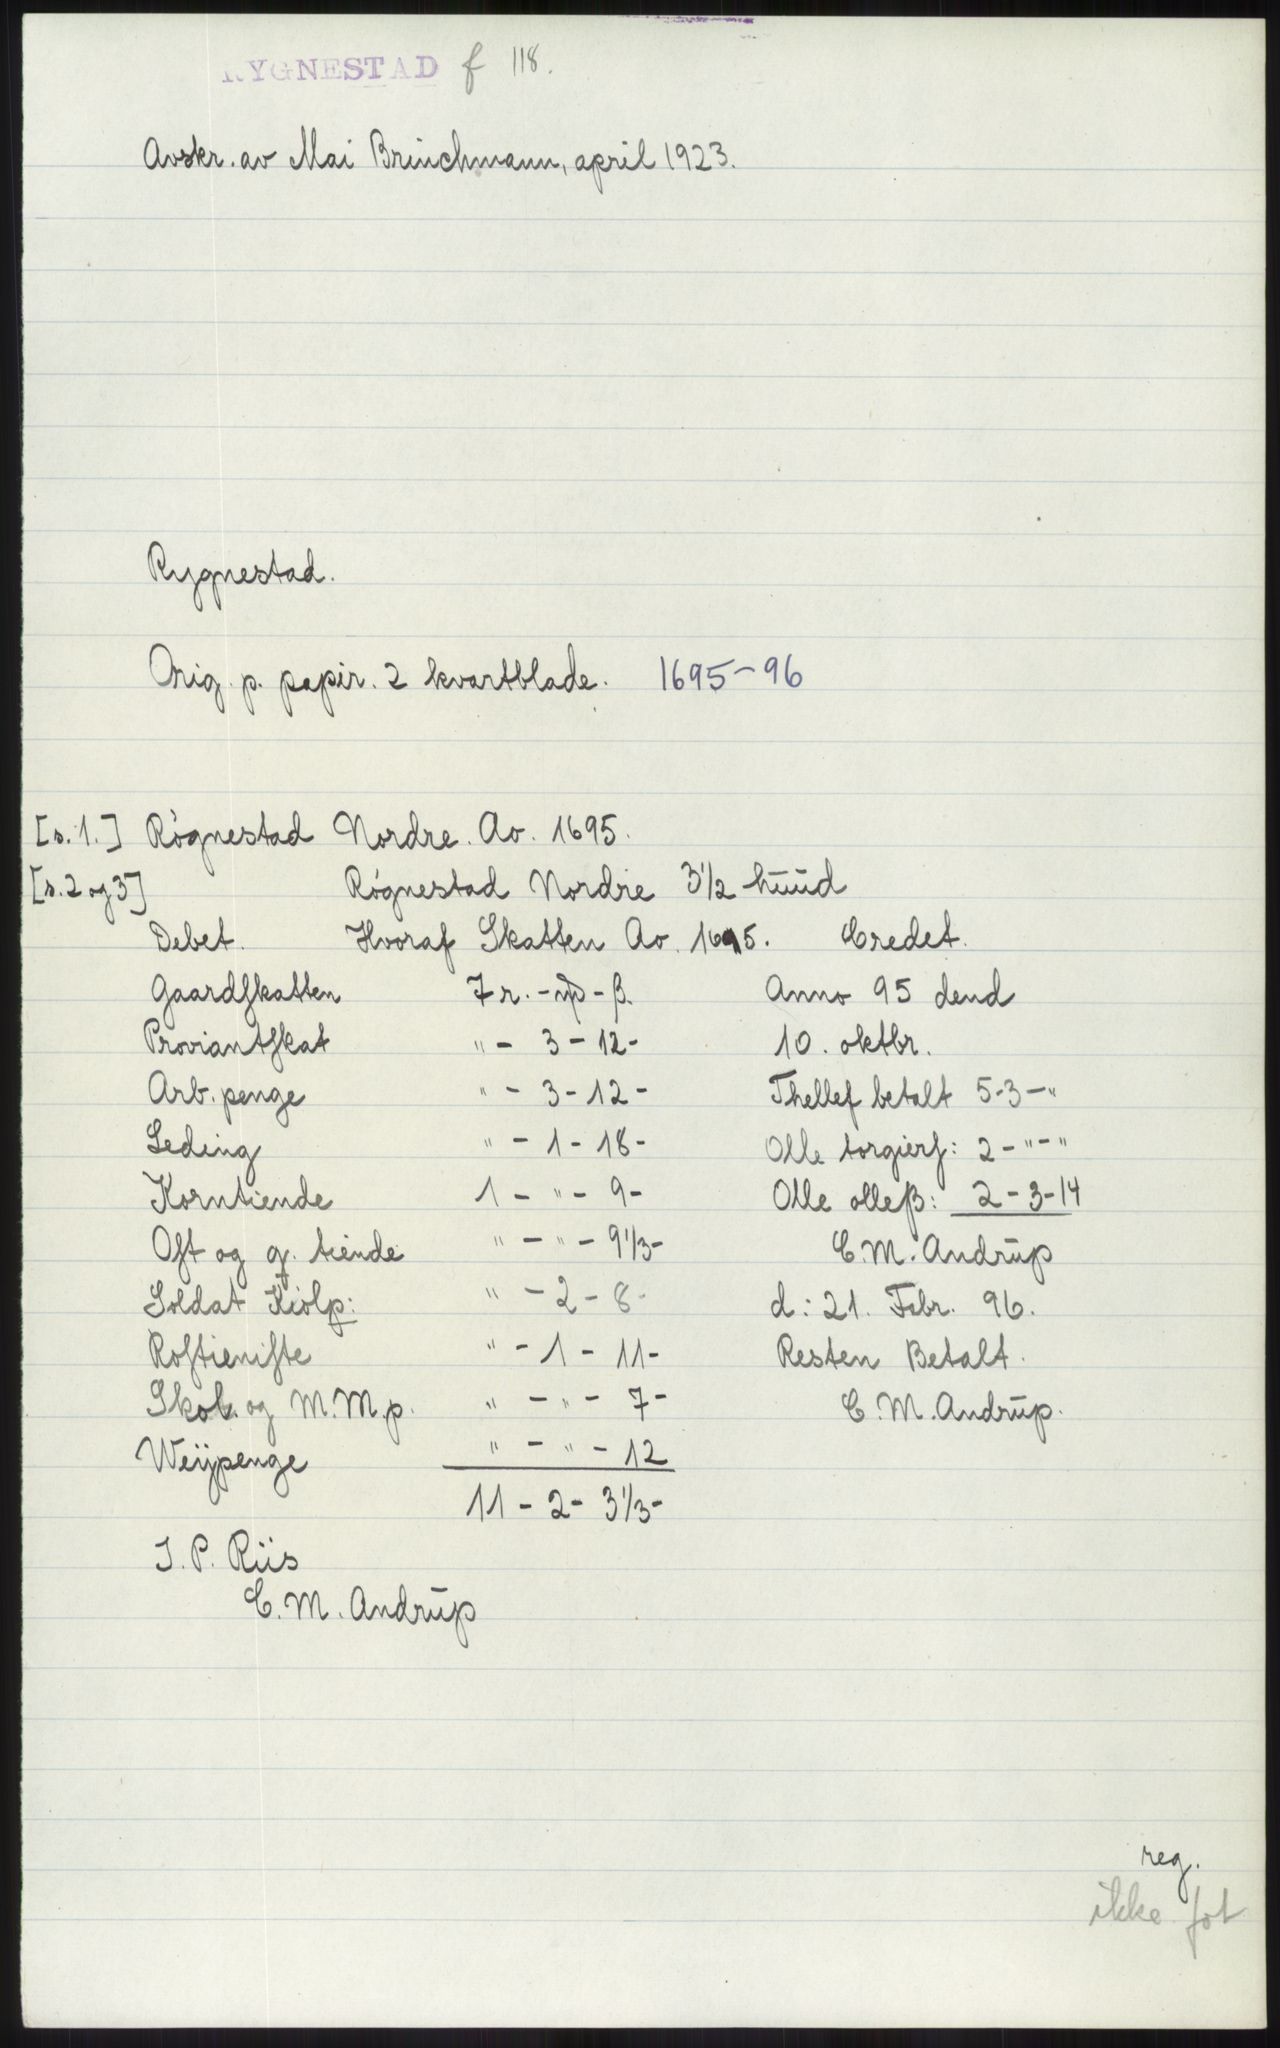 RYGNESTAD f 118.
Avskr. av Mai Brinchmann, april 1923.
Rygnestad.
Orig. p. papir. 2 kvartblade. 1695-96
[s. 1.] Rógnestad Nordre. Ao. 1695.
[s. 2 og 3] Rógnestad Nordre 3 1/2 huud
Debet. Hvoraf Skatten Ao. 1695. Credet.
Gaardskatten 7 r. - - β. Anno 95 dend
Proviantskat " - 3 - 12 - 10. oktbr.
Arb. penge " - 3 - 12 - Thellef betalt 5-3-"
Leding " - 1 - 18 - Olle torgiers: 2 - " - "
Korntiende 1 - " - 9 - Olle olleß: 2 - 3 - 14
Ost og q. tiende " - " - 9 1/3 - C. M. Andrup
Soldat Kiolp: " - 2 - 8 - d: 21. Febr. 96.
Rostieniste " - 1 - 11 - Resten Betalt.
Skob. og M.M.p. " - " - 7 - C. M. Andrup.
Weijpenge " - " - 12
11 - 2 - 3 1/3 -
I. P. Riis
C. M. Andrup
reg.
ikke fot